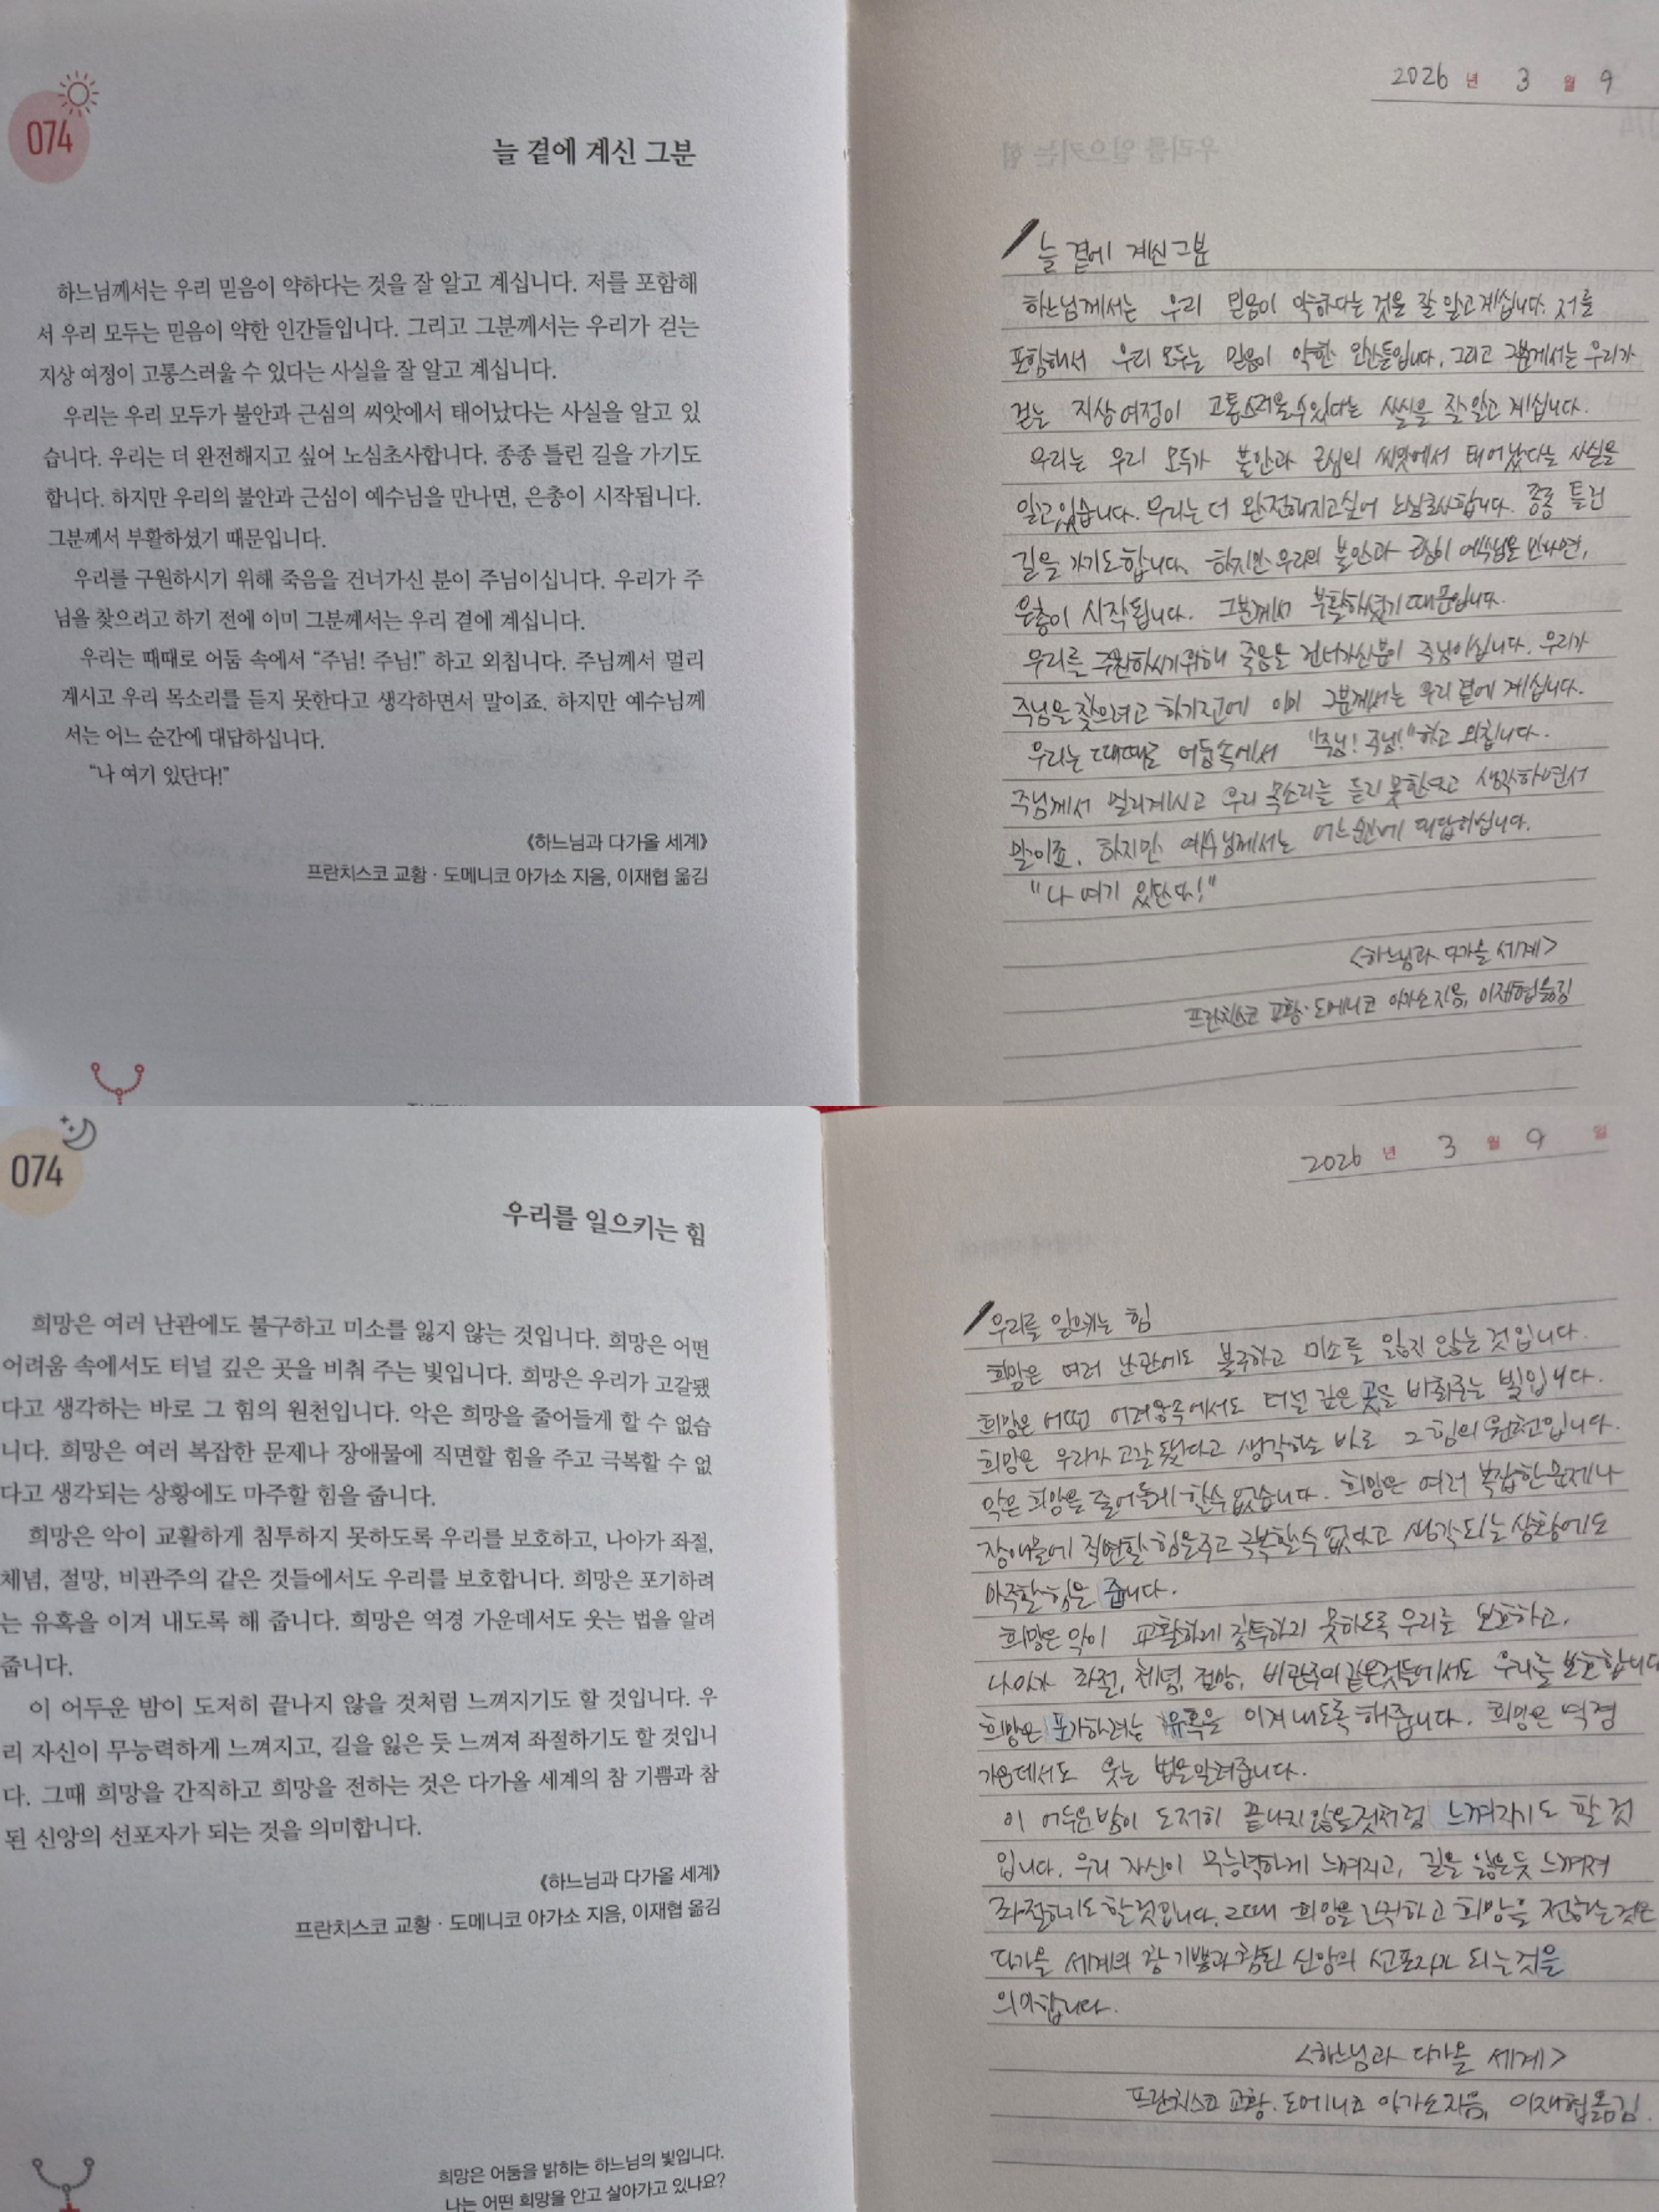 074
늘 곁에 계신 그분
하느님께서는 우리 믿음이 약하다는 것을 잘 알고 계십니다. 저를 포함해
서 우리 모두는 믿음이 약한 인간들입니다. 그리고 그분께서는 우리가 걷는
지상 여정이 고통스러울 수 있다는 사실을 잘 알고 계십니다.
우리는 우리 모두가 불안과 근심의 씨앗에서 태어났다는 사실을 알고 있
습니다. 우리는 더 완전해지고 싶어 노심초사합니다. 종종 틀린 길을 가기도
합니다. 하지만 우리의 불안과 근심이 예수님을 만나면, 은총이 시작됩니다.
그분께서 부활하셨기 때문입니다.
우리를 구원하시기 위해 죽음을 건너가신 분이 주님이십니다. 우리가 주
님을 찾으려고 하기 전에 이미 그분께서는 우리 곁에 계십니다.
우리는 때때로 어둠 속에서 “주님! 주님!” 하고 외칩니다. 주님께서 멀리
계시고 우리 목소리를 듣지 못한다고 생각하면서 말이죠. 하지만 예수님께
서는 어느 순간에 대답하십니다.
“나 여기 있단다!”
《하느님과 다가올 세계》
프란치스코 교황 · 도메니코 아가소 지음, 이재협 옮김
2026 년 3 월 9
늘 곁에 계신 그분
하느님께서는 우리 믿음이 약하다는 것을 잘 알고 계십니다. 저를
포함해서 우리 모두는 믿음이 약한 인간들입니다. 그리고 그분께서는 우리가
걷는 지상 여정이 고통스러울 수 있다는 사실을 잘 알고 계십니다.
우리는 우리 모두가 불안과 근심의 씨앗에서 태어났다는 사실을
알고 있습니다. 우리는 더 완전해지고 싶어 노심초사합니다. 종종 틀린
길을 가기도 합니다. 하지만 우리의 불안과 근심이 예수님을 만나면,
은총이 시작됩니다. 그분께서 부활하셨기 때문입니다.
우리를 구원하시기 위해 죽음을 건너가신 분이 주님이십니다. 우리가
주님을 찾으려고 하기 전에 이미 그분께서는 우리 곁에 계십니다.
우리는 때때로 어둠속에서 "주님! 주님!" 하고 외칩니다.
주님께서 멀리계시고 우리 목소리를 듣지 못한다고 생각하면서
말이죠. 하지만 예수님께서는 어느 순간에 대답하십니다.
"나 여기 있단다!"
<하느님과 다가올 세계>
프란치스코 교황·도메니코 아가소 지음, 이재협 옮김
074
우리를 일으키는 힘
희망은 여러 난관에도 불구하고 미소를 잃지 않는 것입니다. 희망은 어떤
어려움 속에서도 터널 깊은 곳을 비춰 주는 빛입니다. 희망은 우리가 고갈됐
다고 생각하는 바로 그 힘의 원천입니다. 악은 희망을 줄어들게 할 수 없습
니다. 희망은 여러 복잡한 문제나 장애물에 직면할 힘을 주고 극복할 수 없
다고 생각되는 상황에도 마주할 힘을 줍니다.
희망은 악이 교활하게 침투하지 못하도록 우리를 보호하고, 나아가 좌절,
체념, 절망, 비관주의 같은 것들에서도 우리를 보호합니다. 희망은 포기하려
는 유혹을 이겨 내도록 해 줍니다. 희망은 역경 가운데서도 웃는 법을 알려
줍니다.
이 어두운 밤이 도저히 끝나지 않을 것처럼 느껴지기도 할 것입니다. 우
리 자신이 무능력하게 느껴지고, 길을 잃은 듯 느껴져 좌절하기도 할 것입니
다. 그때 희망을 간직하고 희망을 전하는 것은 다가올 세계의 참 기쁨과 참
된 신앙의 선포자가 되는 것을 의미합니다.
《하느님과 다가올 세계》
프란치스코 교황 · 도메니코 아가소 지음, 이재협 옮김
희망은 어둠을 밝히는 하느님의 빛입니다.
나는 어떤 희망을 안고 살아가고 있나요?
2026 년 3 월 9 일
우리를 일으키는 힘
희망은 여러 난관에도 불구하고 미소를 잃지 않는 것입니다.
희망은 어떤 어려움속에서도 터널 깊은 곳을 비춰주는 빛입니다.
희망은 우리가 고갈됐다고 생각하는 바로 그 힘의 원천입니다.
악은 희망을 줄어들게 할수 없습니다. 희망은 여러 복잡한 문제나
장애물에 직면할 힘을 주고 극복할 수 없다고 생각되는 상황에도
마주할 힘은 줍니다.
희망은 악이 교활하게 침투하지 못하도록 우리를 보호하고,
나아가 좌절, 체념, 절망, 비관주의 같은것들에서도 우리를 보호합니다
희망은 포기하려는 유혹을 이겨 내도록 해줍니다. 희망은 역경
가운데서도 웃는 법을 알려줍니다.
이 어두운 밤이 도저히 끝나지 않을 것처럼 느껴지기도 할 것
입니다. 우리 자신이 무능력하게 느껴지고, 길을 잃은 듯 느껴져
좌절하기도 할 것입니다. 그때 희망을 간직하고 희망을 전하는 것은
다가올 세계의 참 기쁨과 참된 신앙의 선포자가 되는 것을
의미합니다.
<하느님과 다가올 세계>
프란치스코 교황·도메니코 아가소 지음, 이재협 옮김.